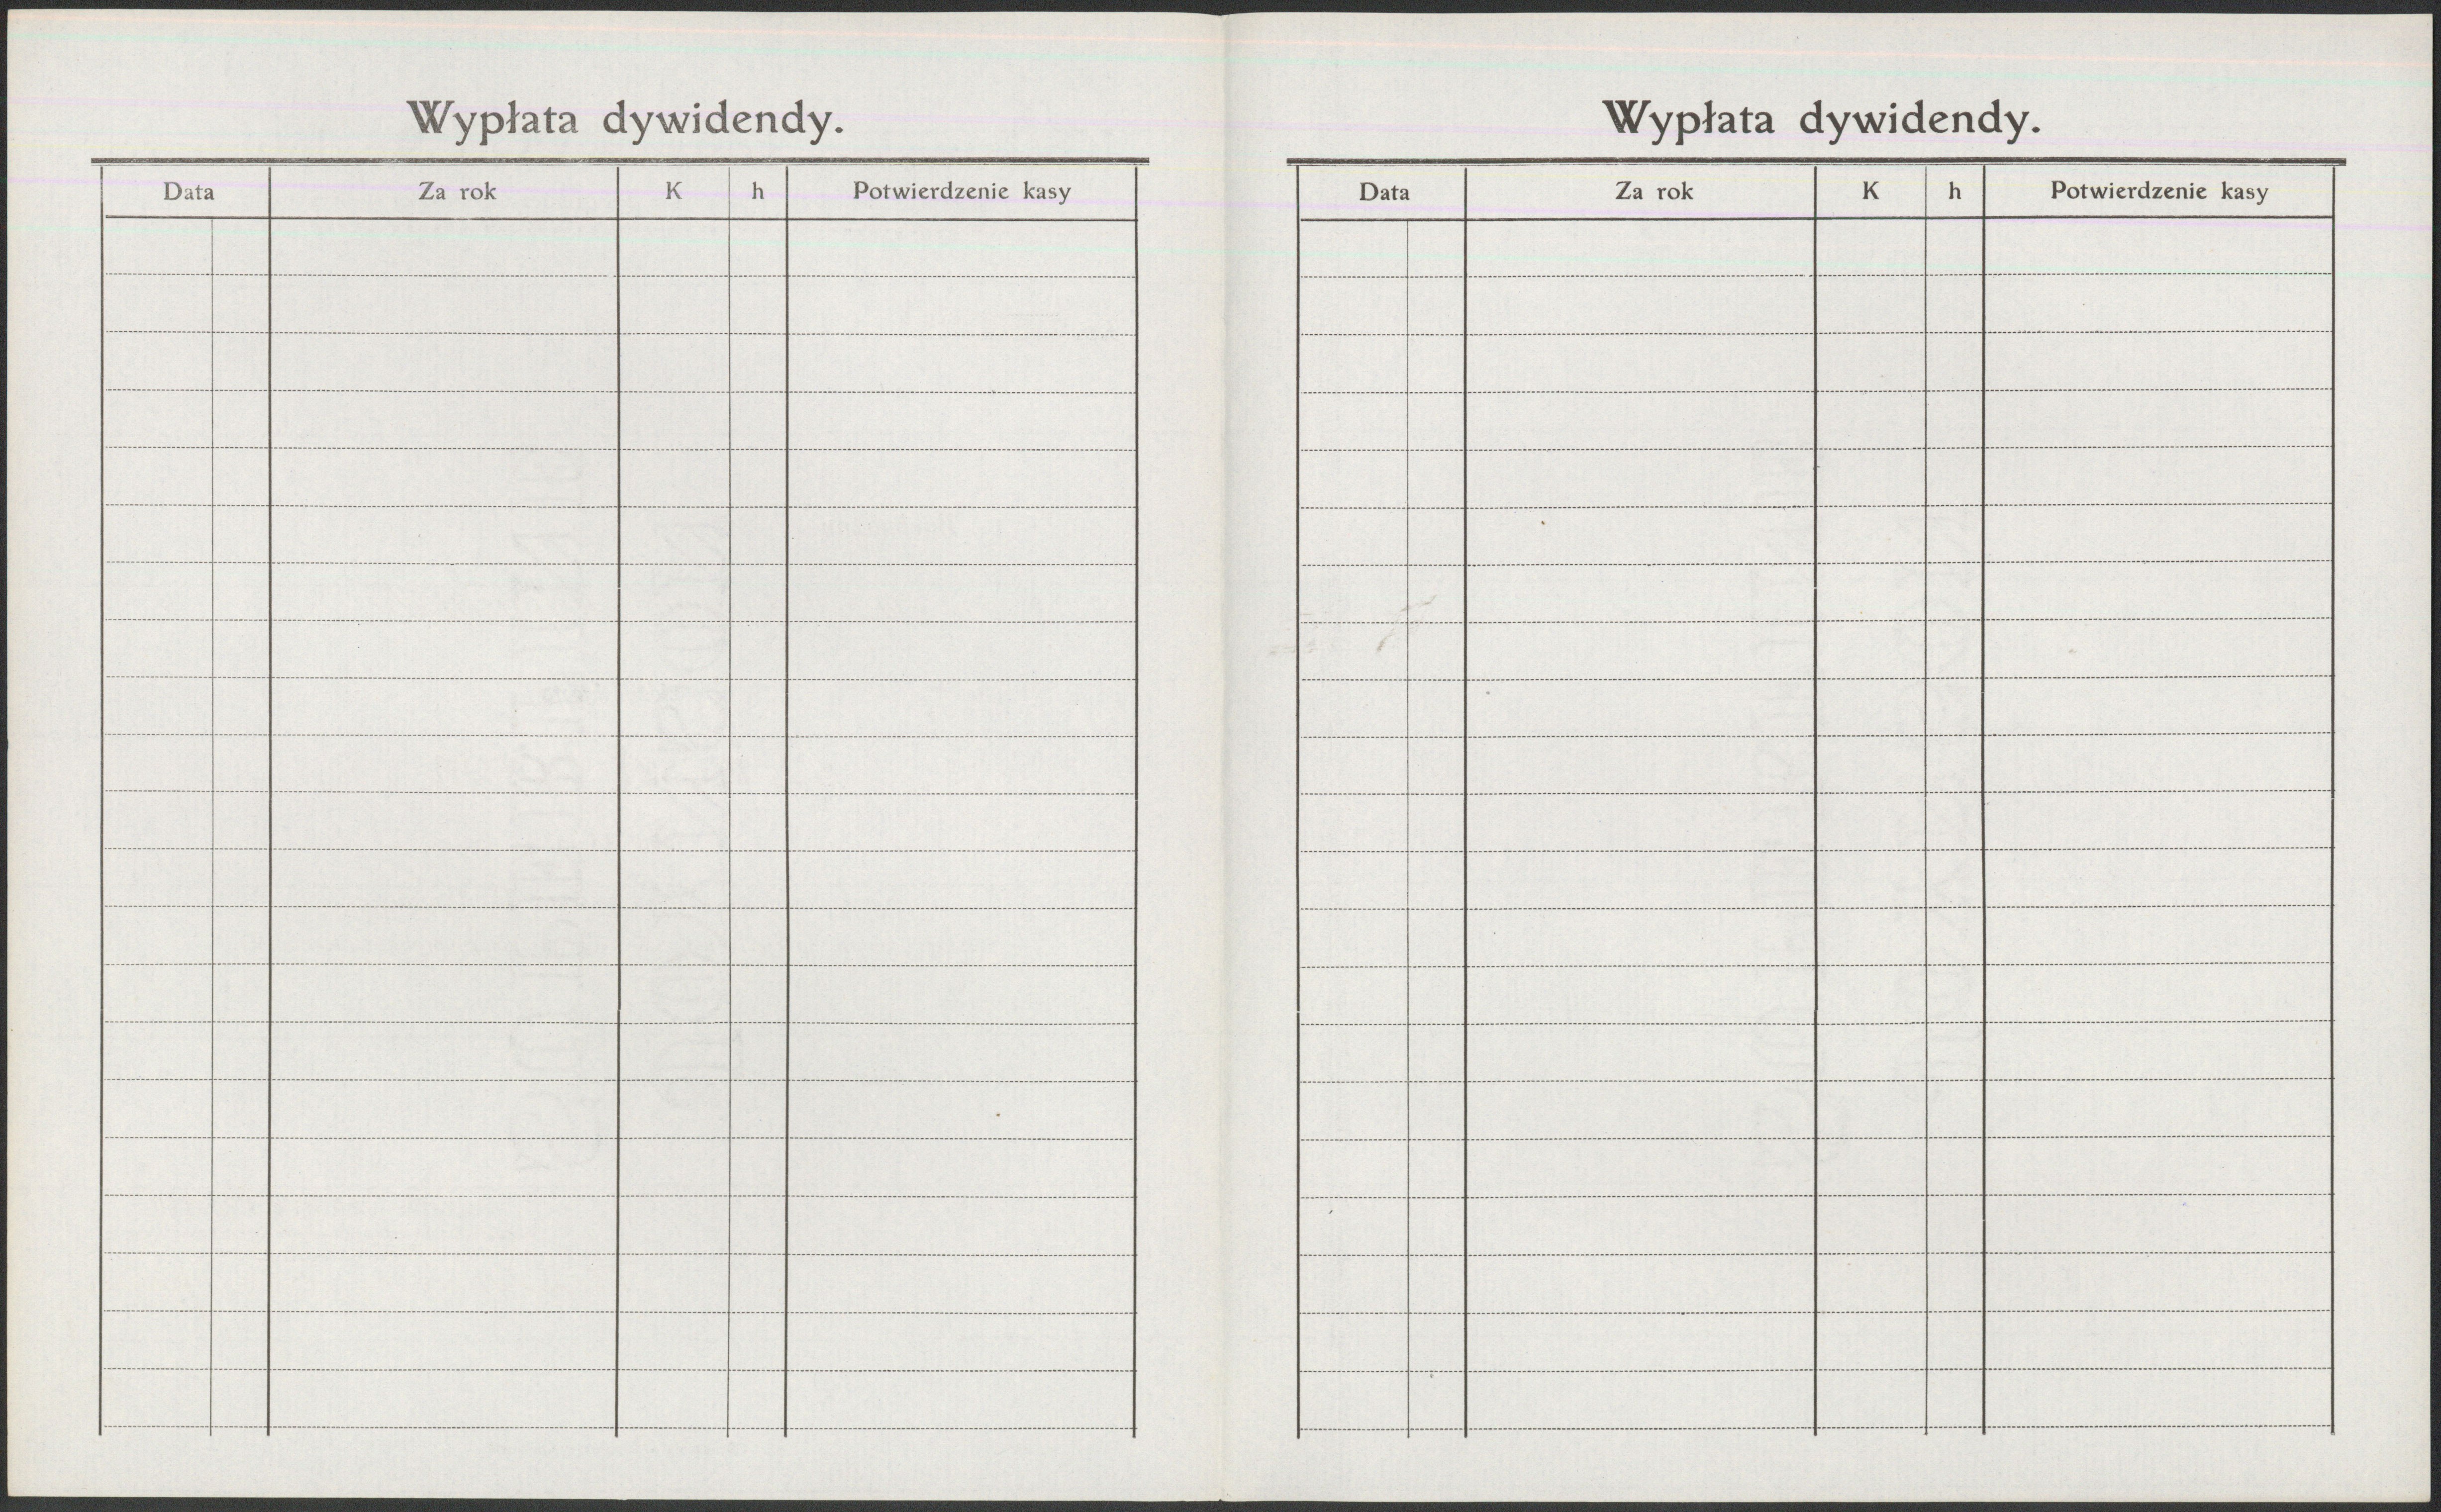 Wypłata dywidendy.
Data Za rok K h Potwierdzenie kasy
Wypłata dywidendy.
Data Za rok K h Potwierdzenie kasy